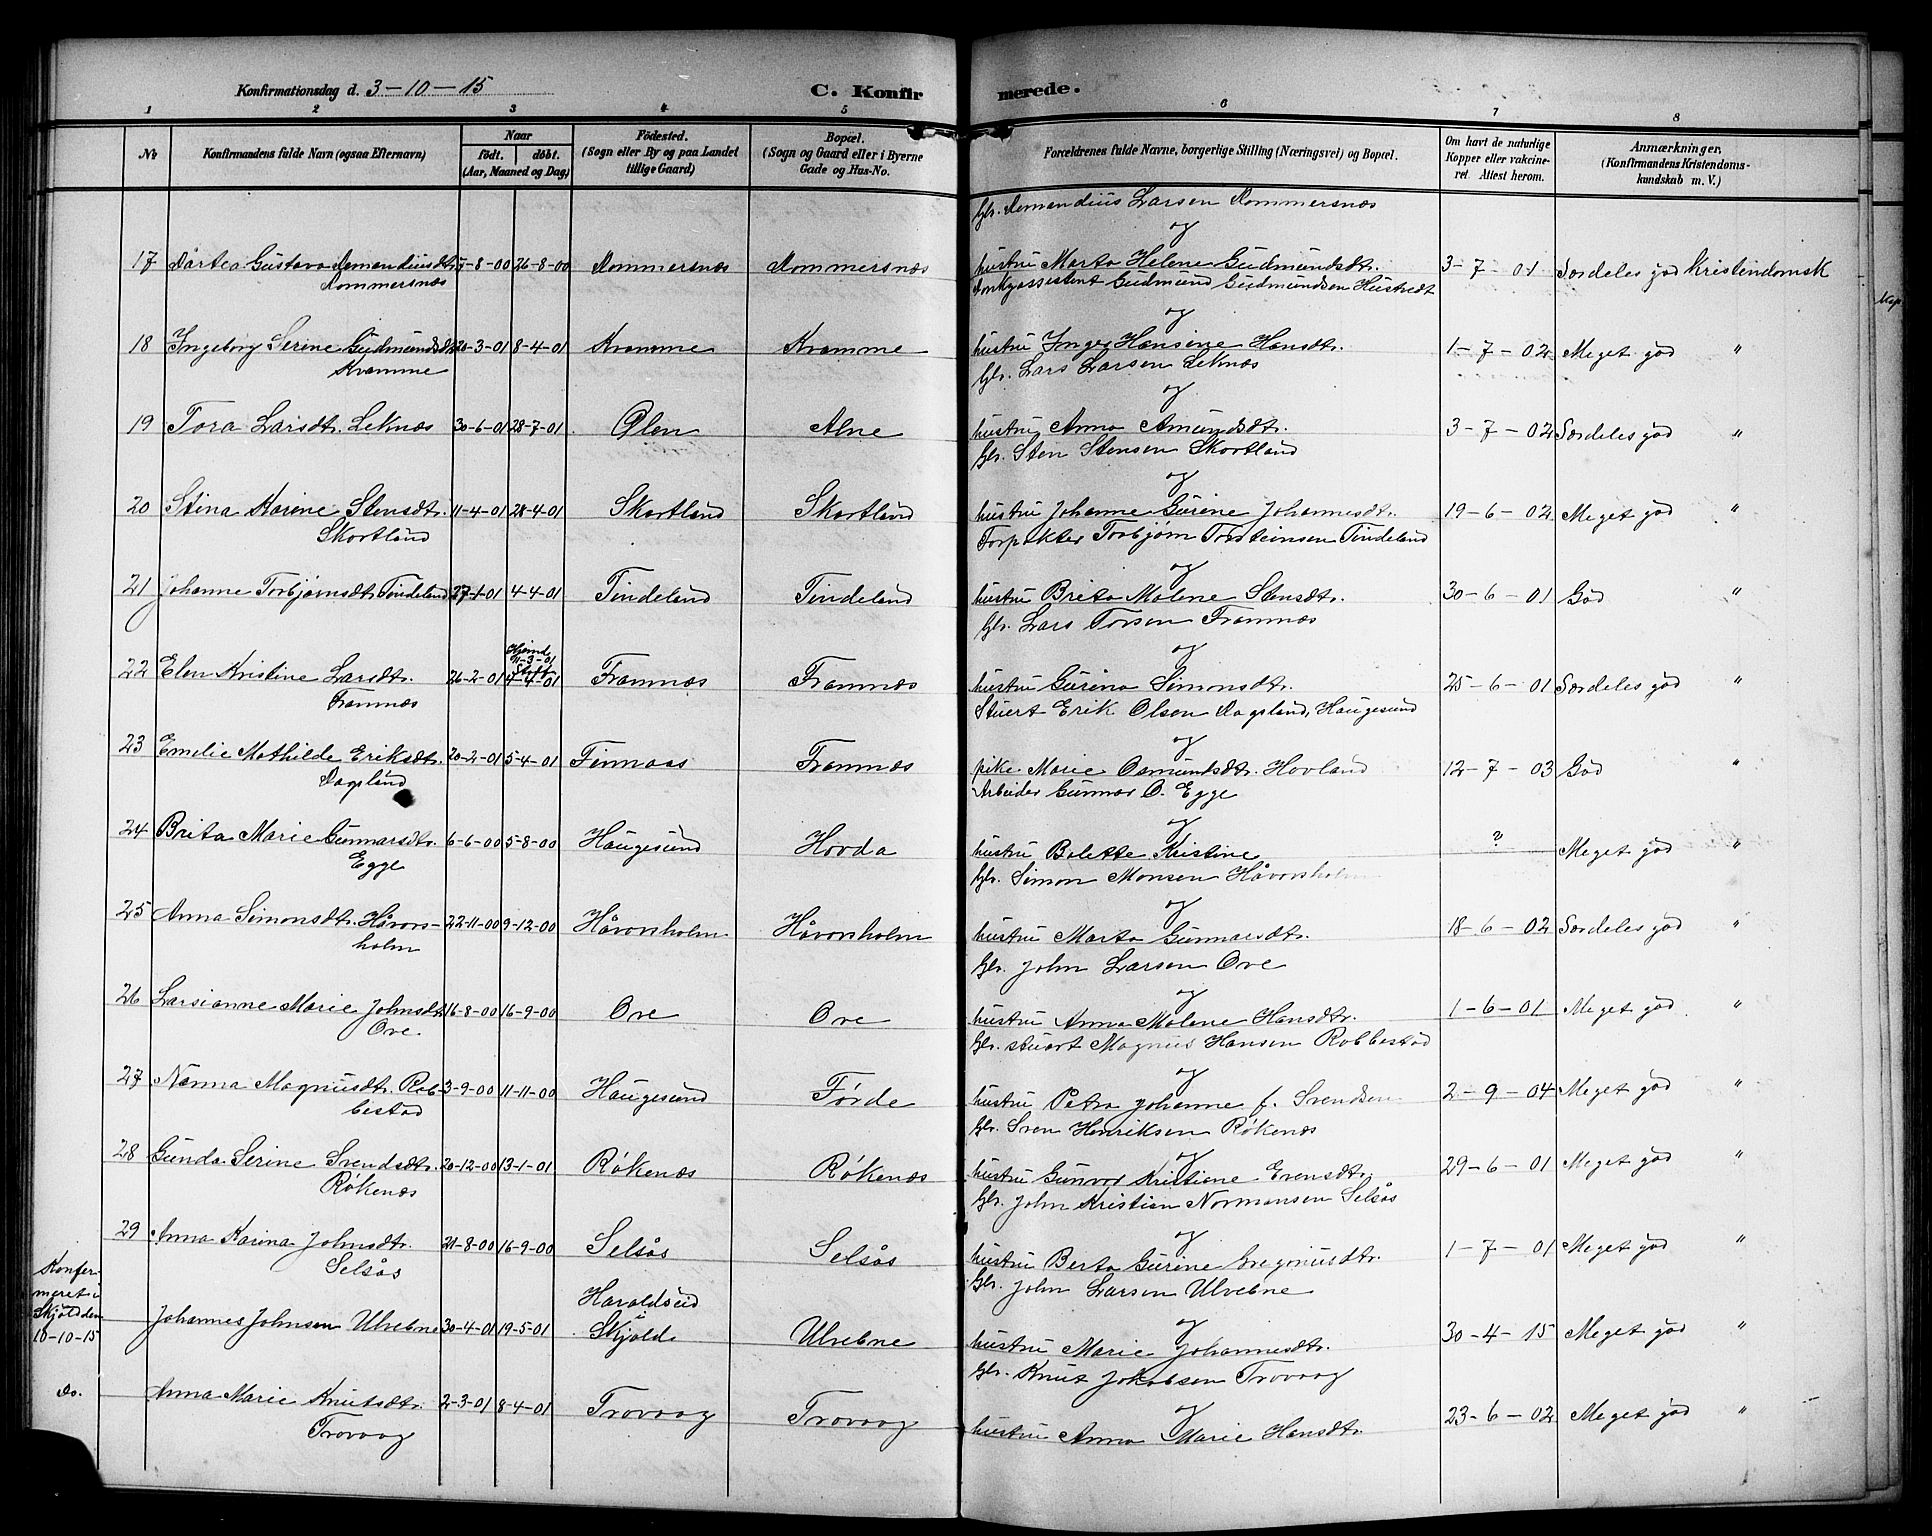 Konfirmationsdag d. 3-10-15
C. Konfirmerede.
1 2 3 4 5 6 7 8
No
Konfirmandens fulde Navn (ogsaa Efternavn)
Naar
födt. döbt.
(Aar, Maaned og Dag)
Födested.
(Sogn eller By og paa Landet
tillige Gaard)
Bopæl.
(Sogn og Gaard eller i Byerne
Gade og Hus-No.
Forældrenes fulde Navne, borgerlige Stilling (Næringsvei) og Bopæl.
Om havt de naturlige
Kopper eller vakcine-
ret. Attest herom.
Anmærkninger.
(Konfirmandens Kristendoms-
kundskab m. V.)
Gbr. Amandius Larsen Nommersnæs
og
17 Dårtea Gustava Amandiusdtr. -8-00 26-8-00 Nommersnæs Nommersnæs hustru Marta Helene Gudmundsdtr. 3-7-01 Særdeles god kristendomsk
Nommersnæs
Gudmund Gudmundsen Hustvedt
og
18 Ingeborg Serine Gudmundsdtr. 20-3-01 8-4-01 Kramme Kramme hustru Inger Hansine Hansdtr. 1-7-02 Meget god "
Kramme
Gbr. Lars Larsen Leknæs
og
19 Tora Larsdtr. Leknæs 30-6-01 28-7-01 Ølen Alne hustru Anna Amundsdtr. 3-7-02 Særdeles god "
Gbr. Sten Stensen Skartland
og
20 Stina Karine Stensdtr. 11-4-01 28-4-01 Skartland Skartland hustru Johanne Gurine Johannesdtr. 19-6-02 Meget god "
Skartland
Forpakter Torbjørn Torsteinsen Tindeland
og
21 Johanne Torbjørnsdtr. Tindeland 27-1-01 4-4-01 Tindeland Tindeland hustru Brita Malene Stensdtr. 30-6-01 God "
Gbr. Lars Torsen Framnæs
og
22 Elen Kristine Larsdtr. 26-2-01 Hjemd. 11-3-01 Stdf. 4-4-01 Framnæs Framnæs hustru Gurina Simonsdtr. 25-6-01 Særdeles god "
Framnæs
Stuert Erik Olsen Dagsland, Haugesund
og
23 Emelie Mathilde Eriksdtr. 20-2-01 5-4-01 Finnaas Framnæs pike Marie Osmundsdtr. Hovland 12-7-03 God "
Dagsland
Arbeider Gunnar O. Egge
og
24 Brita Marie Gunnarsdtr. 6-6-00 5-8-00 Haugesund Hovda hustru Bolette Kristine ? Meget god "
Egge
Gbr. Simon Monsen Håvorsholm
og
25 Anna Simonsdtr. Håvors- 22-11-00 9-12-00 Håvorsholm Håvorsholm hustru Marta Gunnarsdtr. 18-6-02 Særdeles god "
holm
Gbr. John Larsen Ove
og
26 Larsianne Marie Johnsdtr. 16-8-00 16-9-00 Ove Ove hustru Anna Malene Hansdtr. 1-6-01 Meget god "
Ove.
Gbr. stuart Magnus Hansen Robbestad
og
27 Nanna Magnusdtr. Rob- 3-9-00 11-11-00 Haugesund Førde hustru Petra Johanne f. Svendsen 2-9-04 Meget god "
bestad
Gbr. Sven Henriksen Røkenæs
og
28 Gunda Serine Svendsdtr. 20-12-00 13-1-01 Røkenæs Røkenæs hustru Gunvor Kristiane Evensdtr. 29-6-01 Meget god "
Røkenæs
Gbr. John Kristian Normansen Selsås
og
29 Anna Karina Johnsdtr. 21-8-00 16-9-00 Selsås Selsås hustru Berta Gurine Gregoriusdtr. 1-7-01 Meget god "
Selsås
Gbr. John Larsen Ulvebne
og
Konfer-
meret i
Skjold den
10-10-15
Johannes Johnsen Ulvebne 30-4-01 19-5-01 Haraldseid Skjold Ulvebne hustru Marie Johannesdtr. 30-4-15 Meget god "
Gbr. Knut Jakobsen Trovaag
og
Do. Anna Marie Knutsdtr. 2-3-01 8-4-01 Trovaag Trovaag hustru Anna Marie Hansdtr. 23-6-02 Meget god "
Trovaag